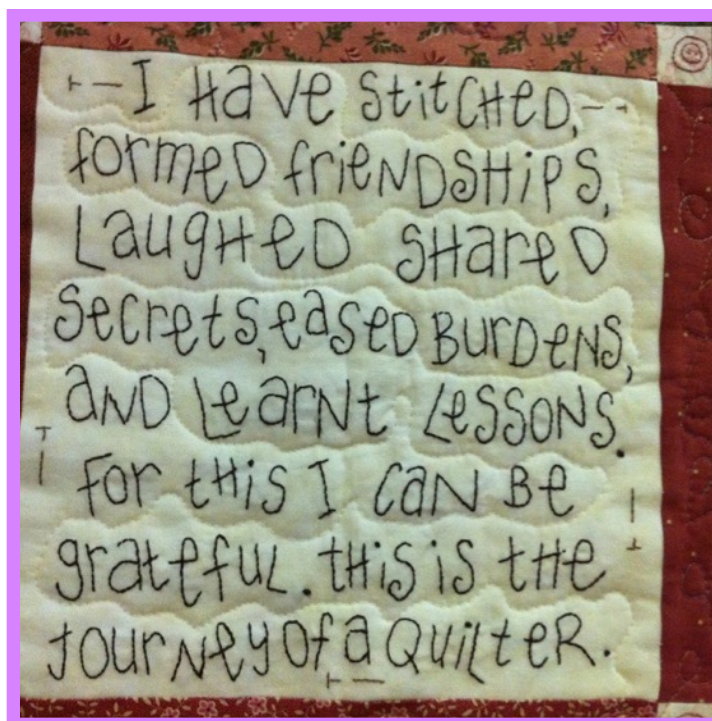 I HAVE StitCHeD,
formeD frieNDSHiPS,
LaugHeD SHareD
Secrets, easeD BurDeNS,
aND LearNt LessoNS.
for tHis I CaN Be
grateful. tHis is tHe
JourNey of a QuilteR.